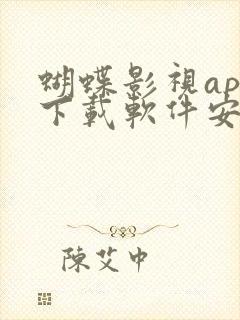 蝴蝶影視ap
下載軟件安
陳艾中